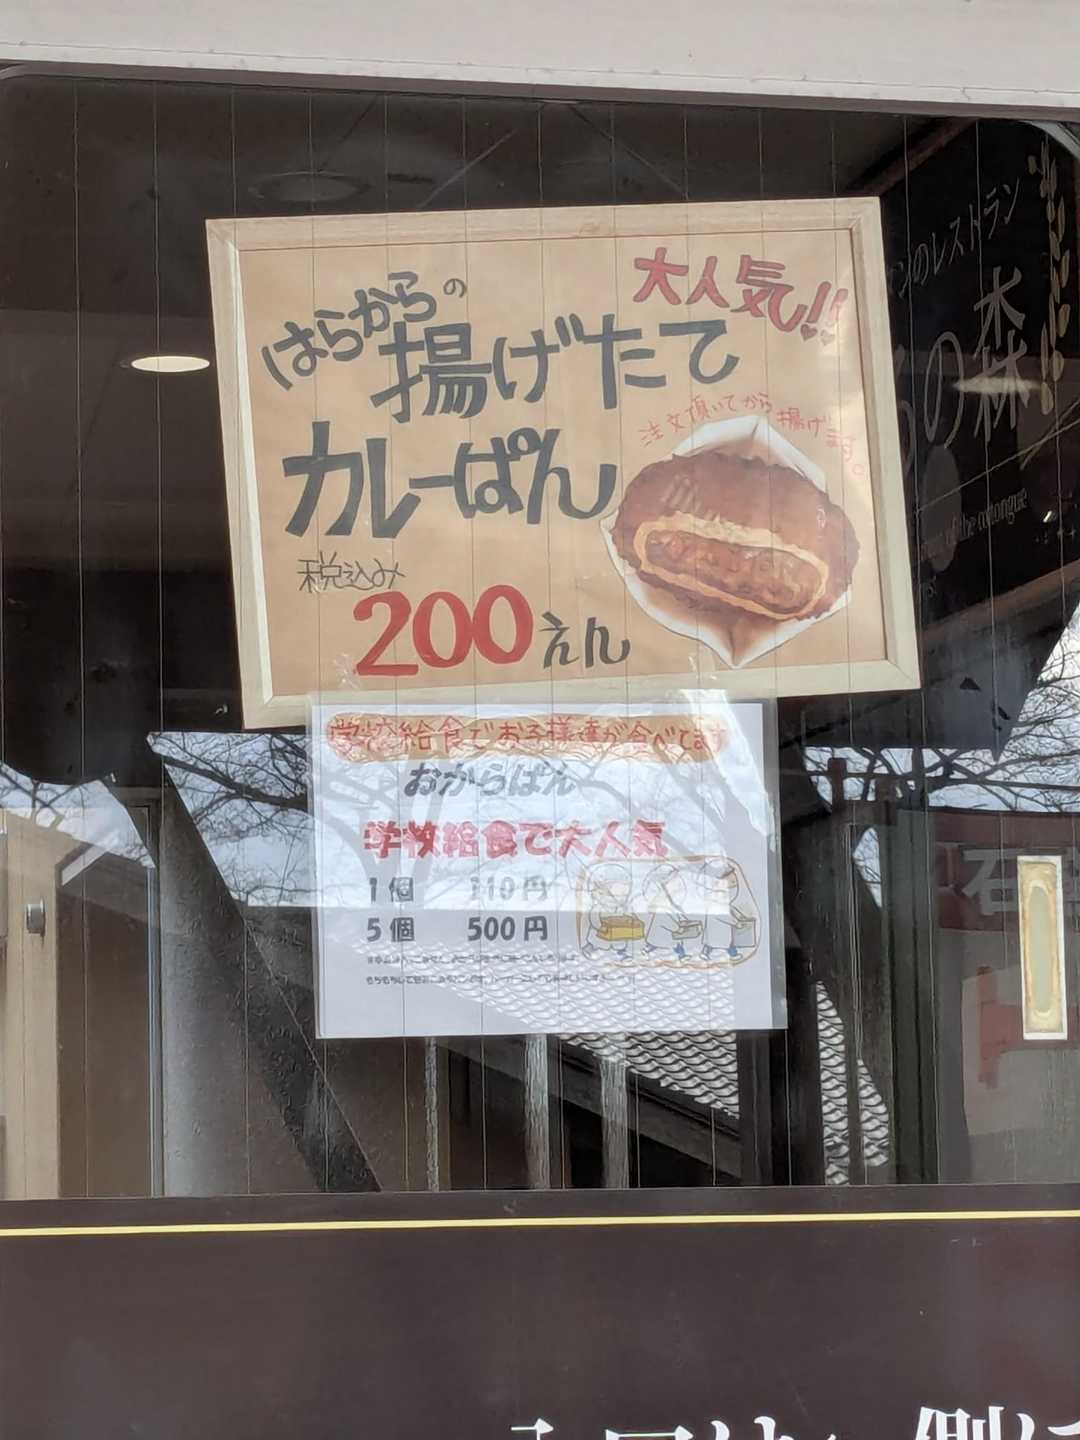 大人気!!
はらからの
揚げたて
カレーぱん
注文頂いてから揚げます。
税込み
200えん
学校給食でお子様達が食べてます
おからぱん
学校給食で大人気
1個 110円
5個 500円
のレストラン
の森